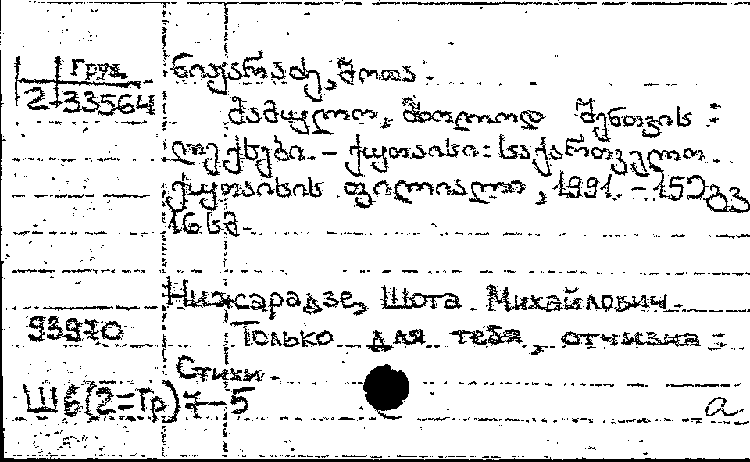 Груз
2-33564
ნიჟარაძე, შოთა.
მამულო, მხოლოდ შენთვის :
ლექსები. – ქუთაისი: საქართველო.
ქუთაისის ფილიალი, 1991. – 150გვ
16 სმ.
Нижарадзе, Шота Михайлович.
93970 Только для тебя, отчизна :
Стихи.
Ш6(2=Гр)7-5
а